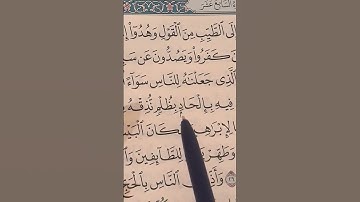 لَى ٱلطَّيِّبِ مِنَ ٱلْقَوْلِ وَهُدُوٓا۟
نَ كَفَرُوا۟ وَيَصُدُّونَ عَن سَ
ٱلَّذِى جَعَلْنَٰهُ لِلنَّاسِ سَوَآءً
فِيهِ بِإِلْحَادٍۭ بِظُلْمٍ نُّذِقْهُ
لِإِبْرَٰهِي مَكَانَ ٱلْبَيْ
وَطَهِّرْ بَ لِلطَّآئِفِينَ وَٱلْ
وَأَذِّن ٱلنَّاسِ بِٱلْحَجِّ